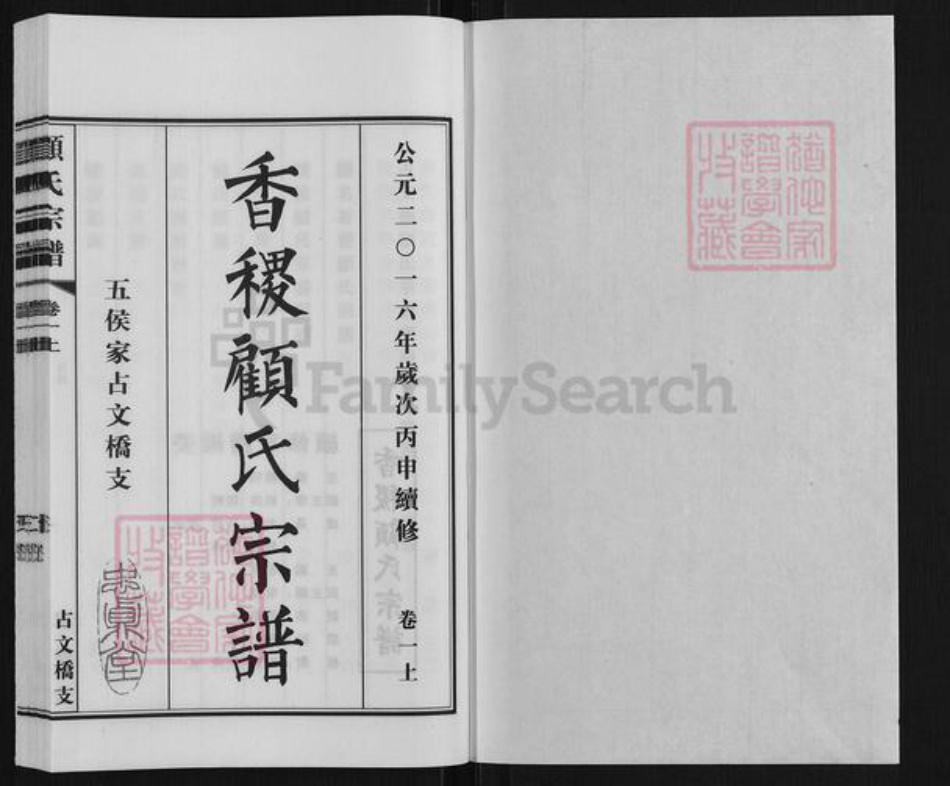 公元二〇一六年歲次丙申續修 卷一上
香稷顧氏宗譜
五侯家占文橋支
顧氏宗譜 卷一上
占文橋支
譜學會
收藏
FamilySearch